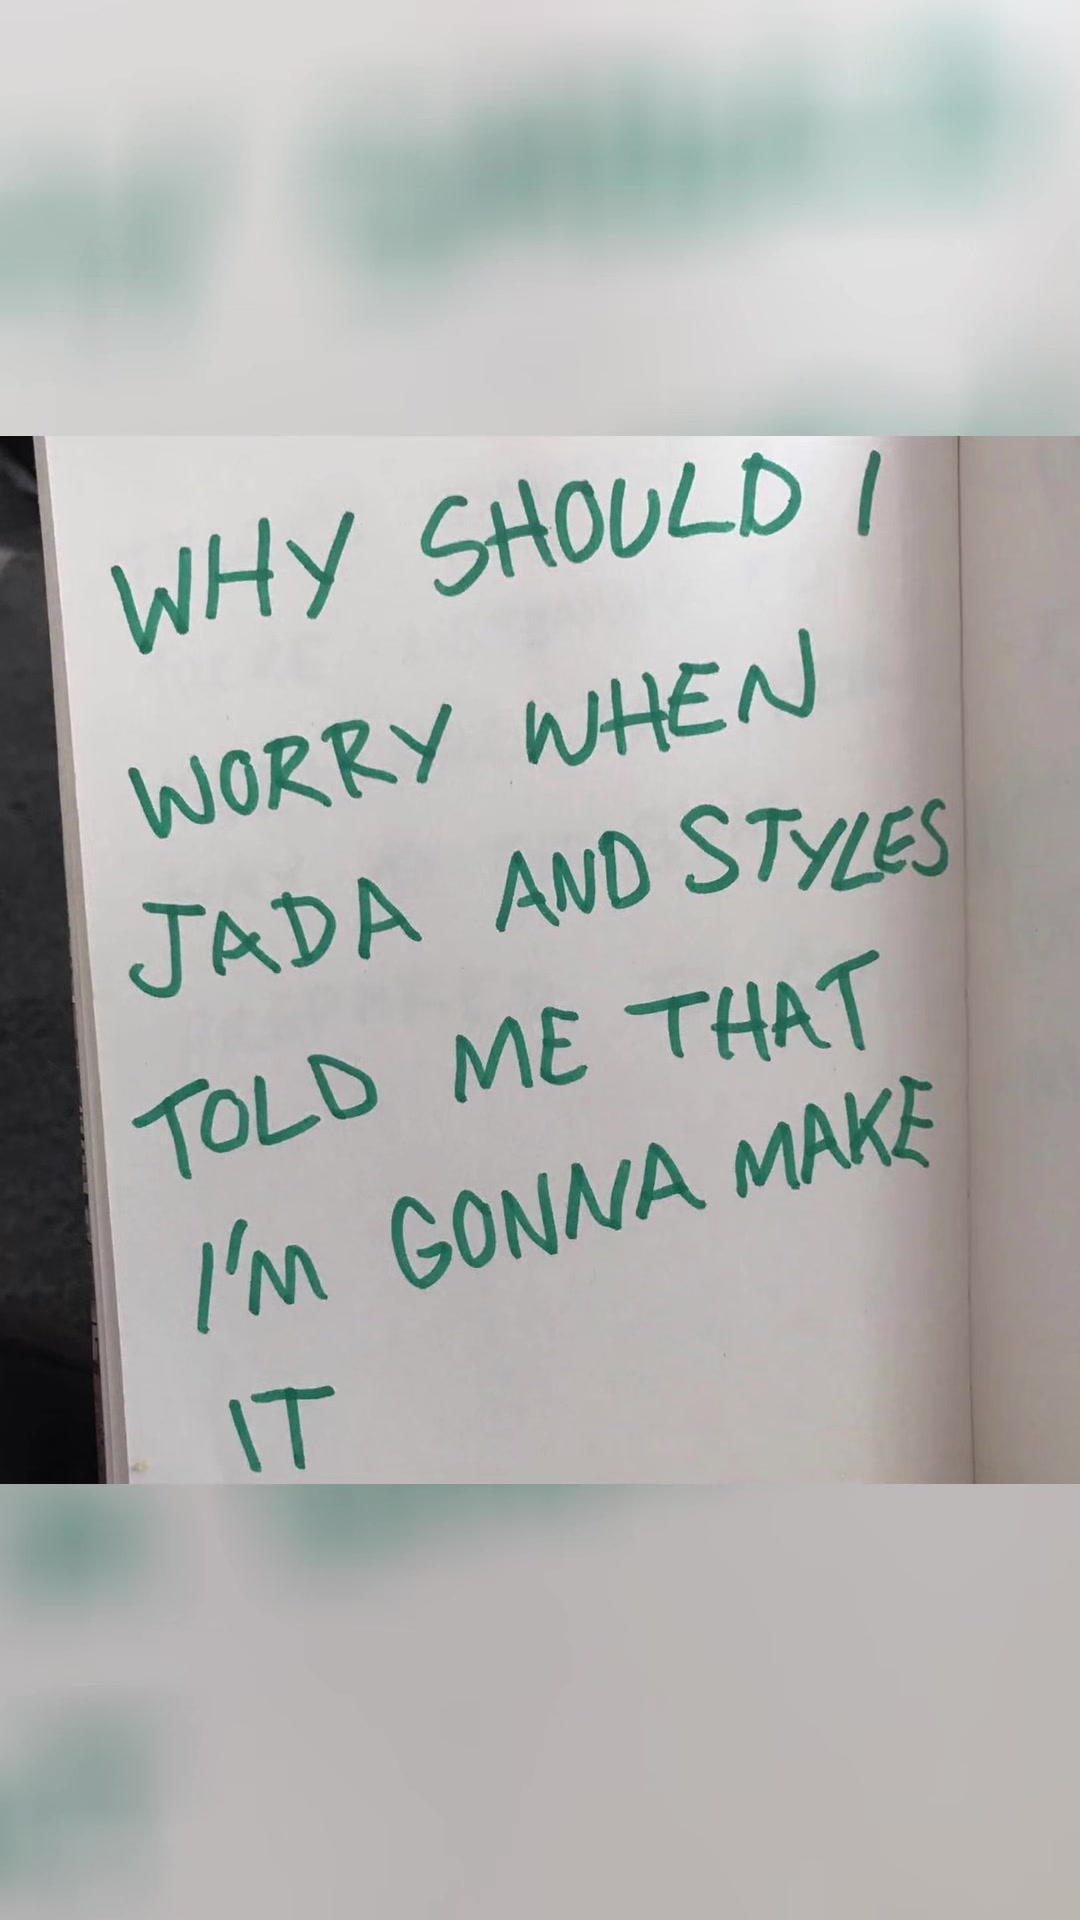 WHY SHOULD I
WORRY WHEN
JADA AND STYLES
TOLD ME THAT
I'M GONNA MAKE
IT